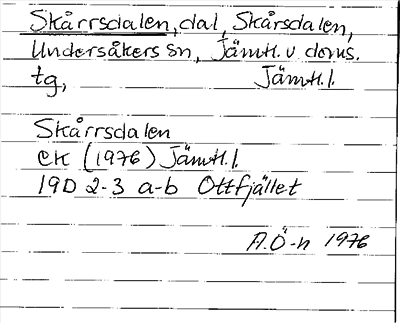 Skårrsdalen, dal, Skårsdalen,
Undersåkers sn, Jämtl. v doms.
tg, Jämtl. l.
Skårrsdalen
ek (1976) Jämtl. l.
19D 2-3 a-b Ottfjället
A.Ö-n 1976